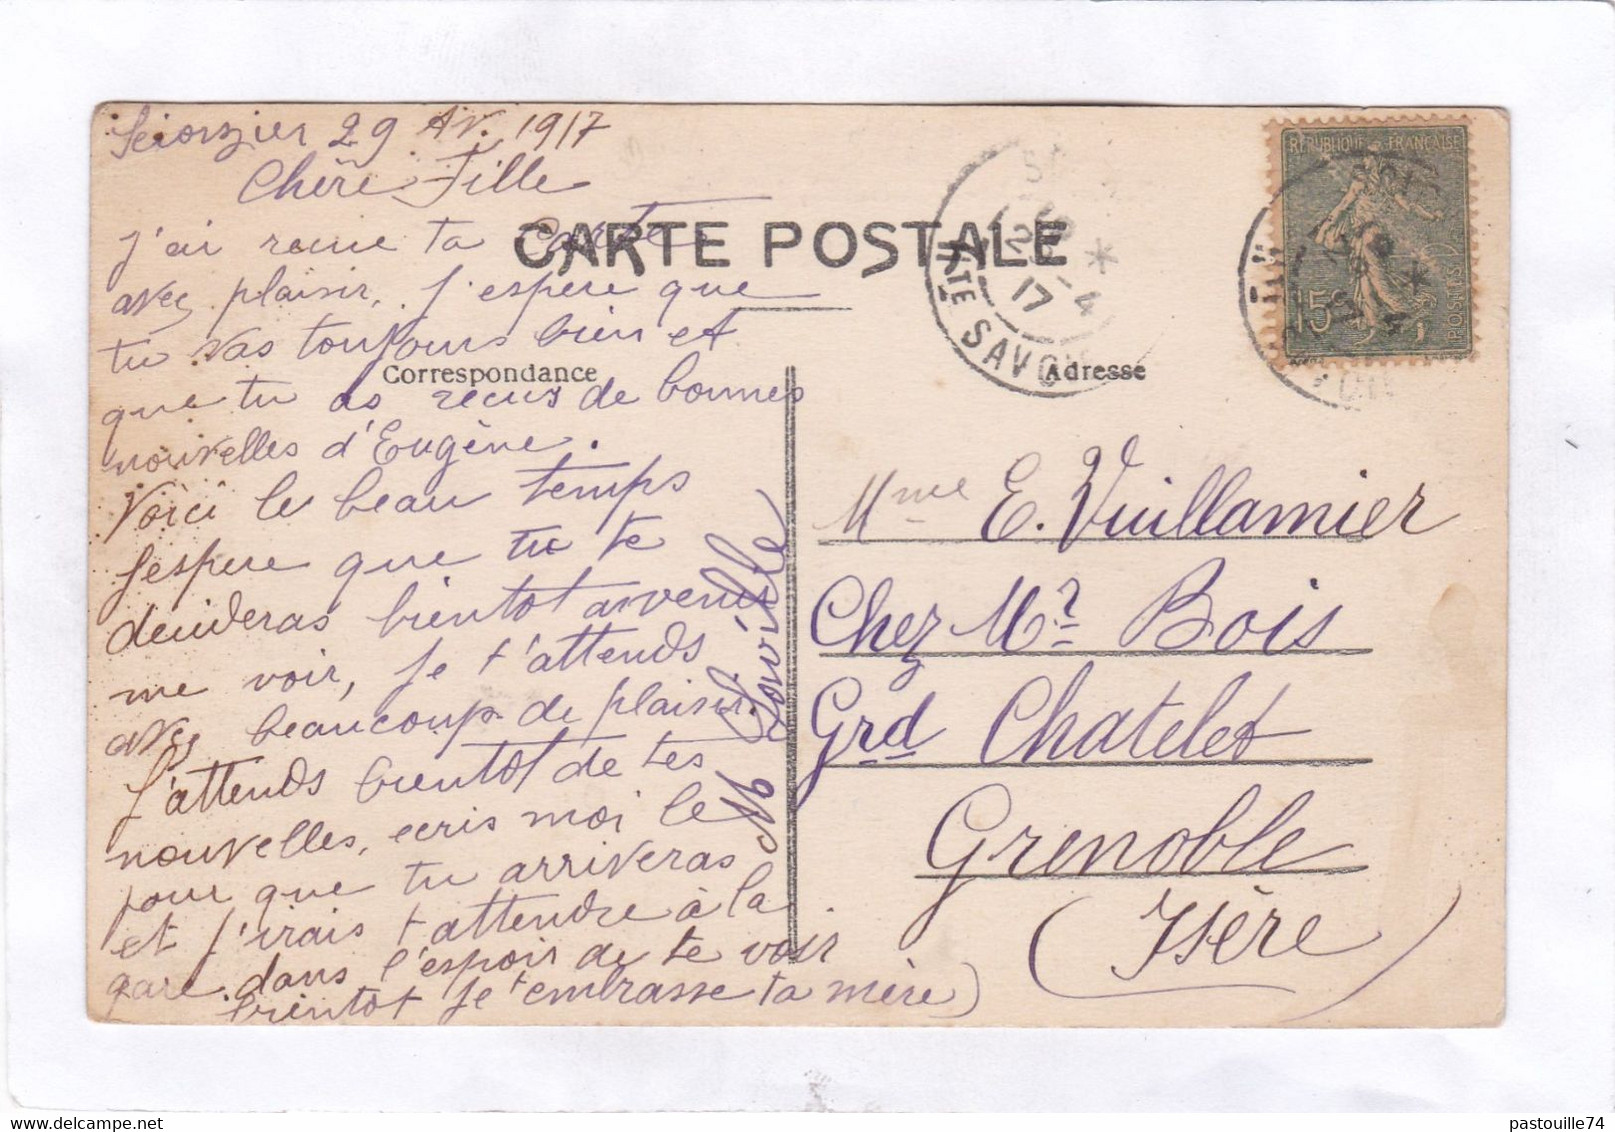 Scionzier 29 Av. 1917
Chère Fille
j'ai recue ta Carte
avec plaisir, j'espere que
tu vas toujours bien et
que tu as recus de bonnes
nouvelles d'Eugène.
Voici le beau temps
J'espere que tu te
decideras bientot a venir
me voir, je t'attends
avec beaucoup de plaisir.
J'attends bientot de tes
nouvelles, ecris moi le
jour que tu arriveras
et j'irais t attendre à la
gare. dans l'espoir de te voir
bientot je t'embrasse ta mère
CARTE POSTALE
Correspondance
Adresse
Mme E. Vuillamier
Chez Mr Bois
Grd Chatelet
Grenoble
(Isère)
REPUBLIQUE FRANÇAISE
15c
POSTES
29 -4
17
Hte SAVOIE
pastouille74